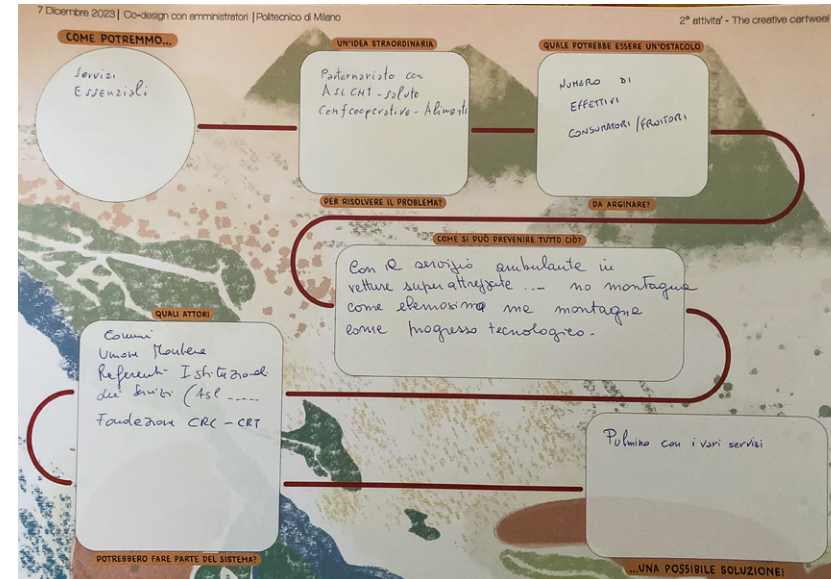 7 Dicembre 2023 | Co-design con amministratori | Politecnico di Milano
2° attivita' - The creative cartweel
COME POTREMMO...
Servizi
Essenziali
UN'IDEA STRAORDINARIA
Partenariato con
ASL CN1 - salute
Confcooperative - Alimenti
PER RISOLVERE IL PROBLEMA?
QUALE POTREBBE ESSERE UN'OSTACOLO
NUMERO DI
EFFETTIVI
CONSUMATORI / FRUITORI
DA ARGINARE?
COME SI PUÒ PREVENIRE TUTTO CIÒ?
Con il servizio ambulante in
vetture super attrezzate ... no montagna
come elemosina ma montagna
come progresso tecnologico.
QUALI ATTORI
Comuni
Unione Montane
Referenti Istituzionali
dei Servizi (Asl ....
Fondazione CRC - CRT
POTREBBERO FARE PARTE DEL SISTEMA?
Pulmino con i vari servizi
...UNA POSSIBILE SOLUZIONE!